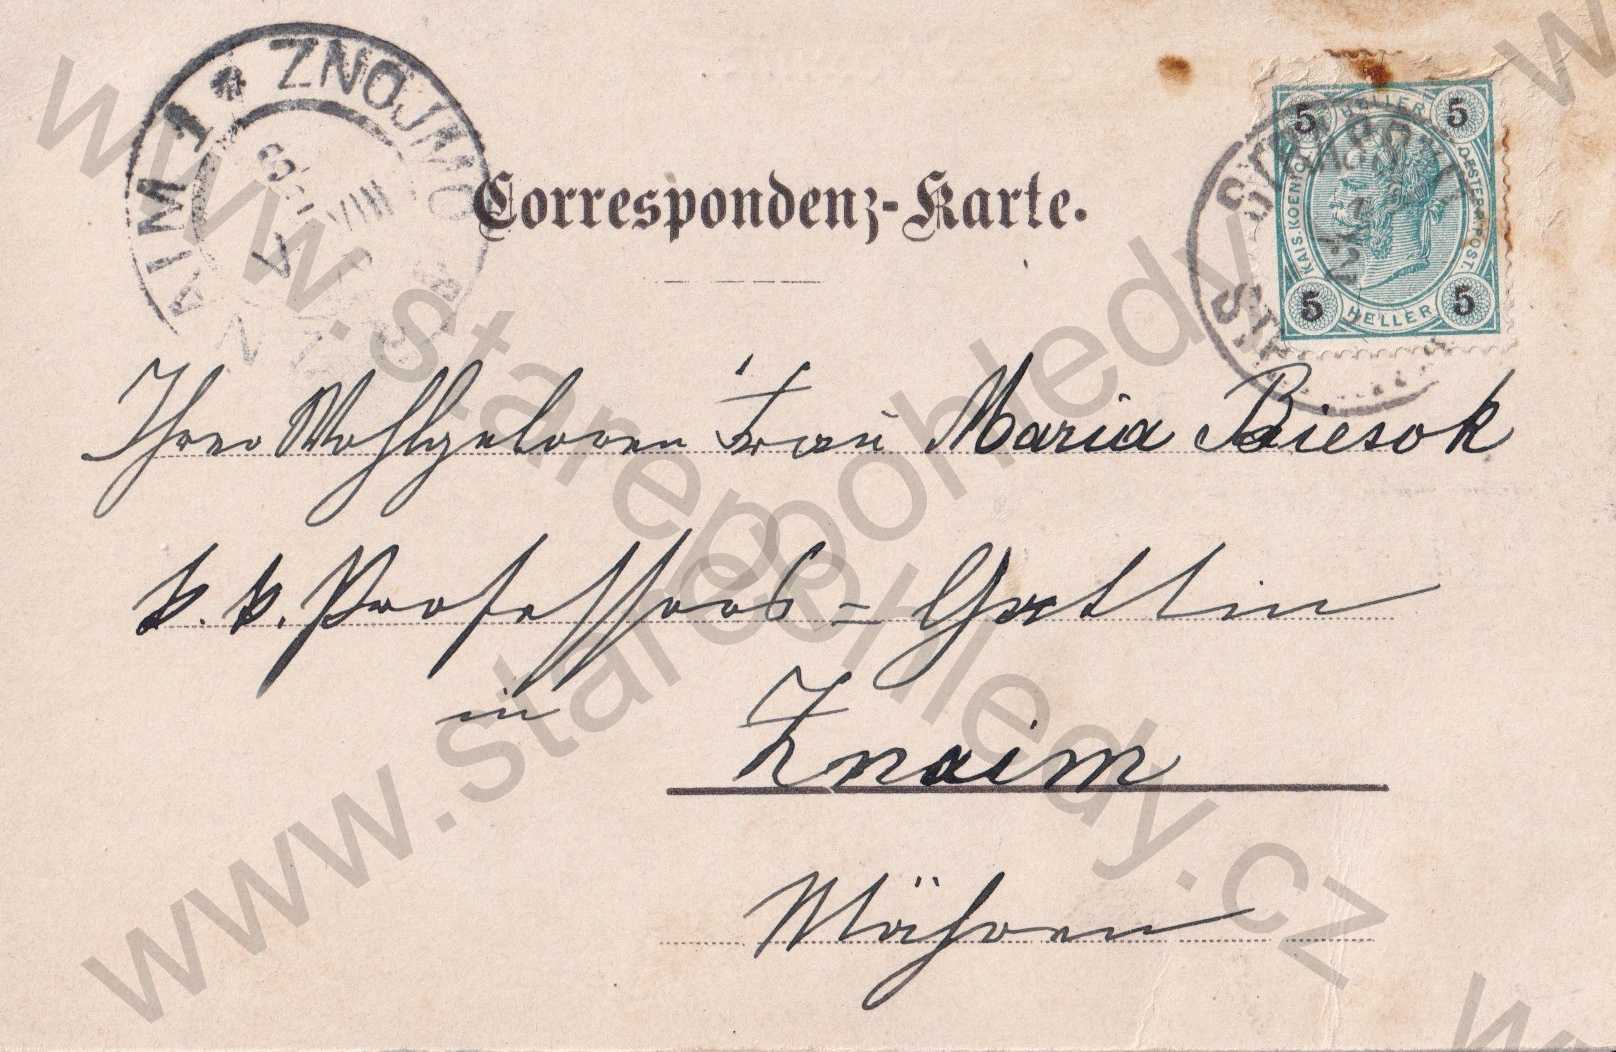 ZNOJMO
ZNAIM 1
Correspondenz-Karte.
5 HELLER 5
KAIS. KOENIGL. OESTERR. POST.
5 HELLER 5
Ihrer Wohlgeboren Frau Maria Biesok
k. k. Professors = Gattin
in Znaim
Mähren
www.starepohledy.cz
www.starepohledy.cz